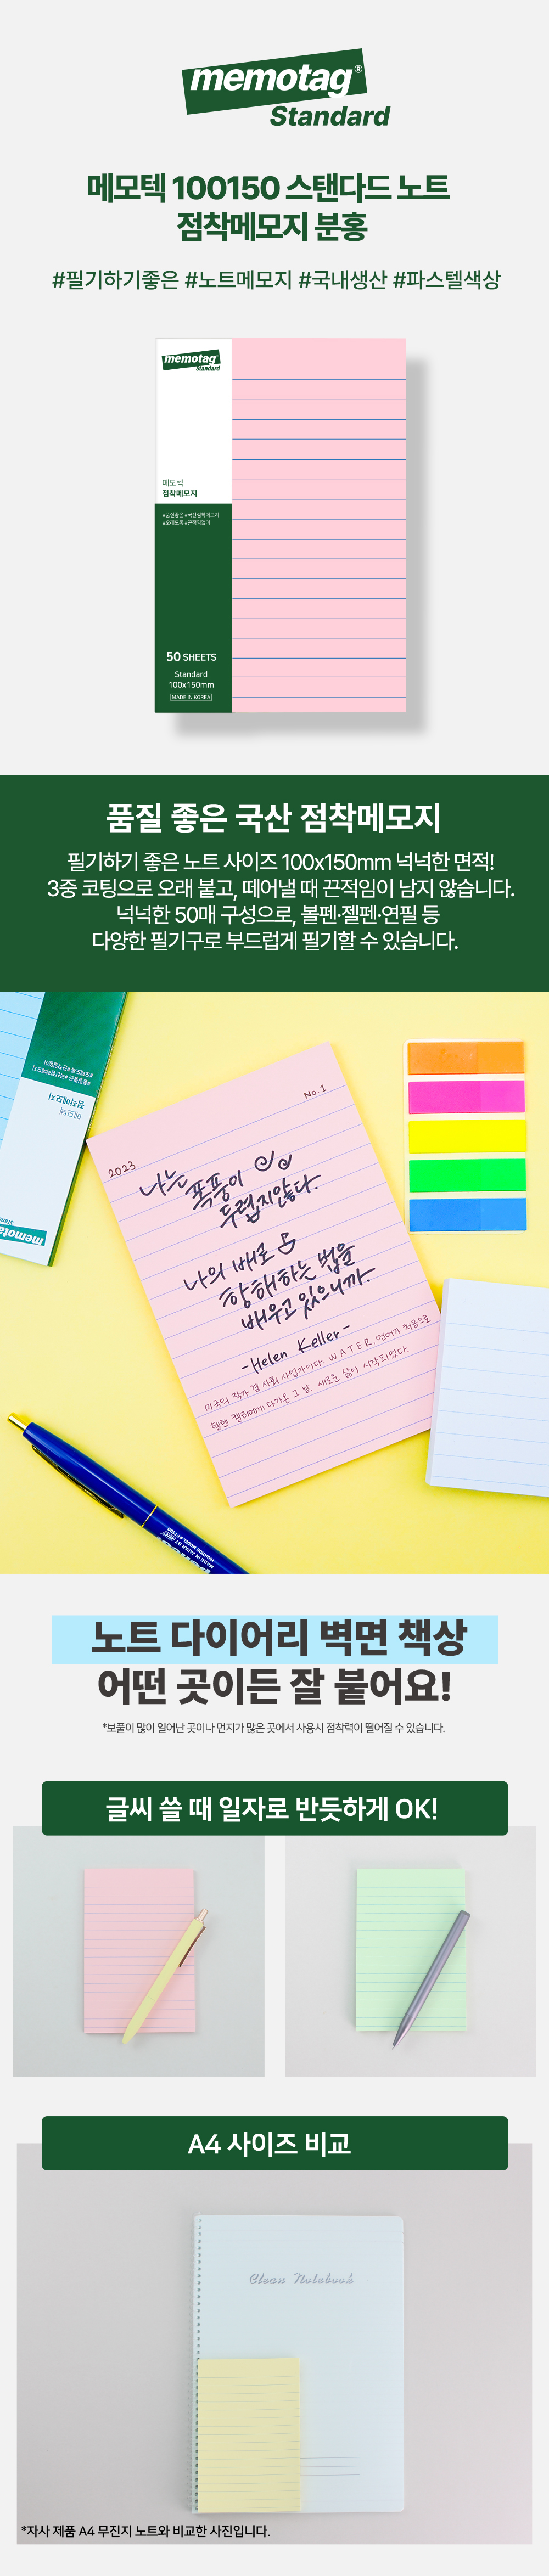 memotag®
Standard
메모텍 100150 스탠다드 노트
점착메모지 분홍
#필기하기좋은 #노트메모지 #국내생산 #파스텔색상
memotag
Standard
메모텍
점착메모지
#품질좋은 #국산점착메모지
#오래도록 #끈적임없이
50 SHEETS
Standard
100x150mm
MADE IN KOREA
품질 좋은 국산 점착메모지
필기하기 좋은 노트 사이즈 100x150mm 넉넉한 면적!
3중 코팅으로 오래 붙고, 떼어낼 때 끈적임이 남지 않습니다.
넉넉한 50매 구성으로, 볼펜·젤펜·연필 등
다양한 필기구로 부드럽게 필기할 수 있습니다.
#오래도록 #끈적임없이
#품질좋은 #국산점착메모지
점착메모지
메모텍
memota
No. 1
2023
나는 폭풍이
두렵지않다.
나의 배로
항해하는 법을
배우고 있으니까.
- Helen Keller -
미국의 작가 겸 사회 사업가이다. WATER. 언어가 처음으로
헬렌 켈러에게 다가온 그 날, 새로운 삶이 시작되었다.
MADE IN JAPAN BY
노트 다이어리 벽면 책상
어떤 곳이든 잘 붙어요!
*보풀이 많이 일어난 곳이나 먼지가 많은 곳에서 사용시 점착력이 떨어질 수 있습니다.
글씨 쓸 때 일자로 반듯하게 OK!
A4 사이즈 비교
Clean Notebook
*자사 제품 A4 무진지 노트와 비교한 사진입니다.